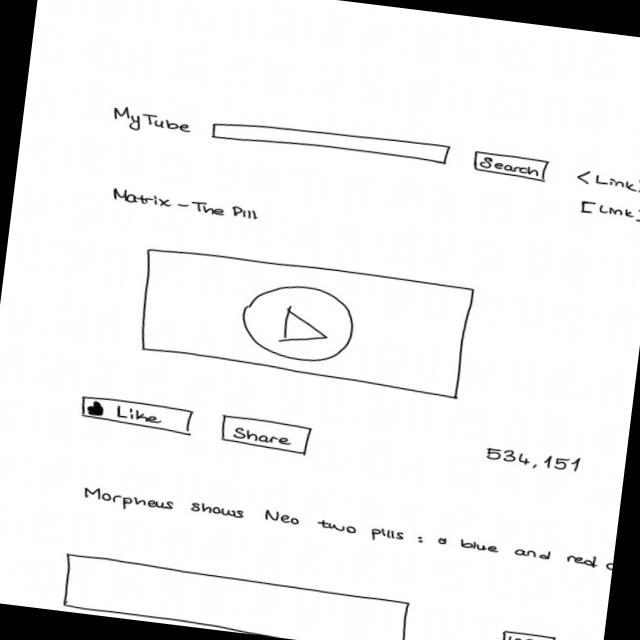 MyTube Search <Link>
[Link]
Matrix - The Pill
Like Share 534,151
Morpheus shows Neo two pills : a blue and red